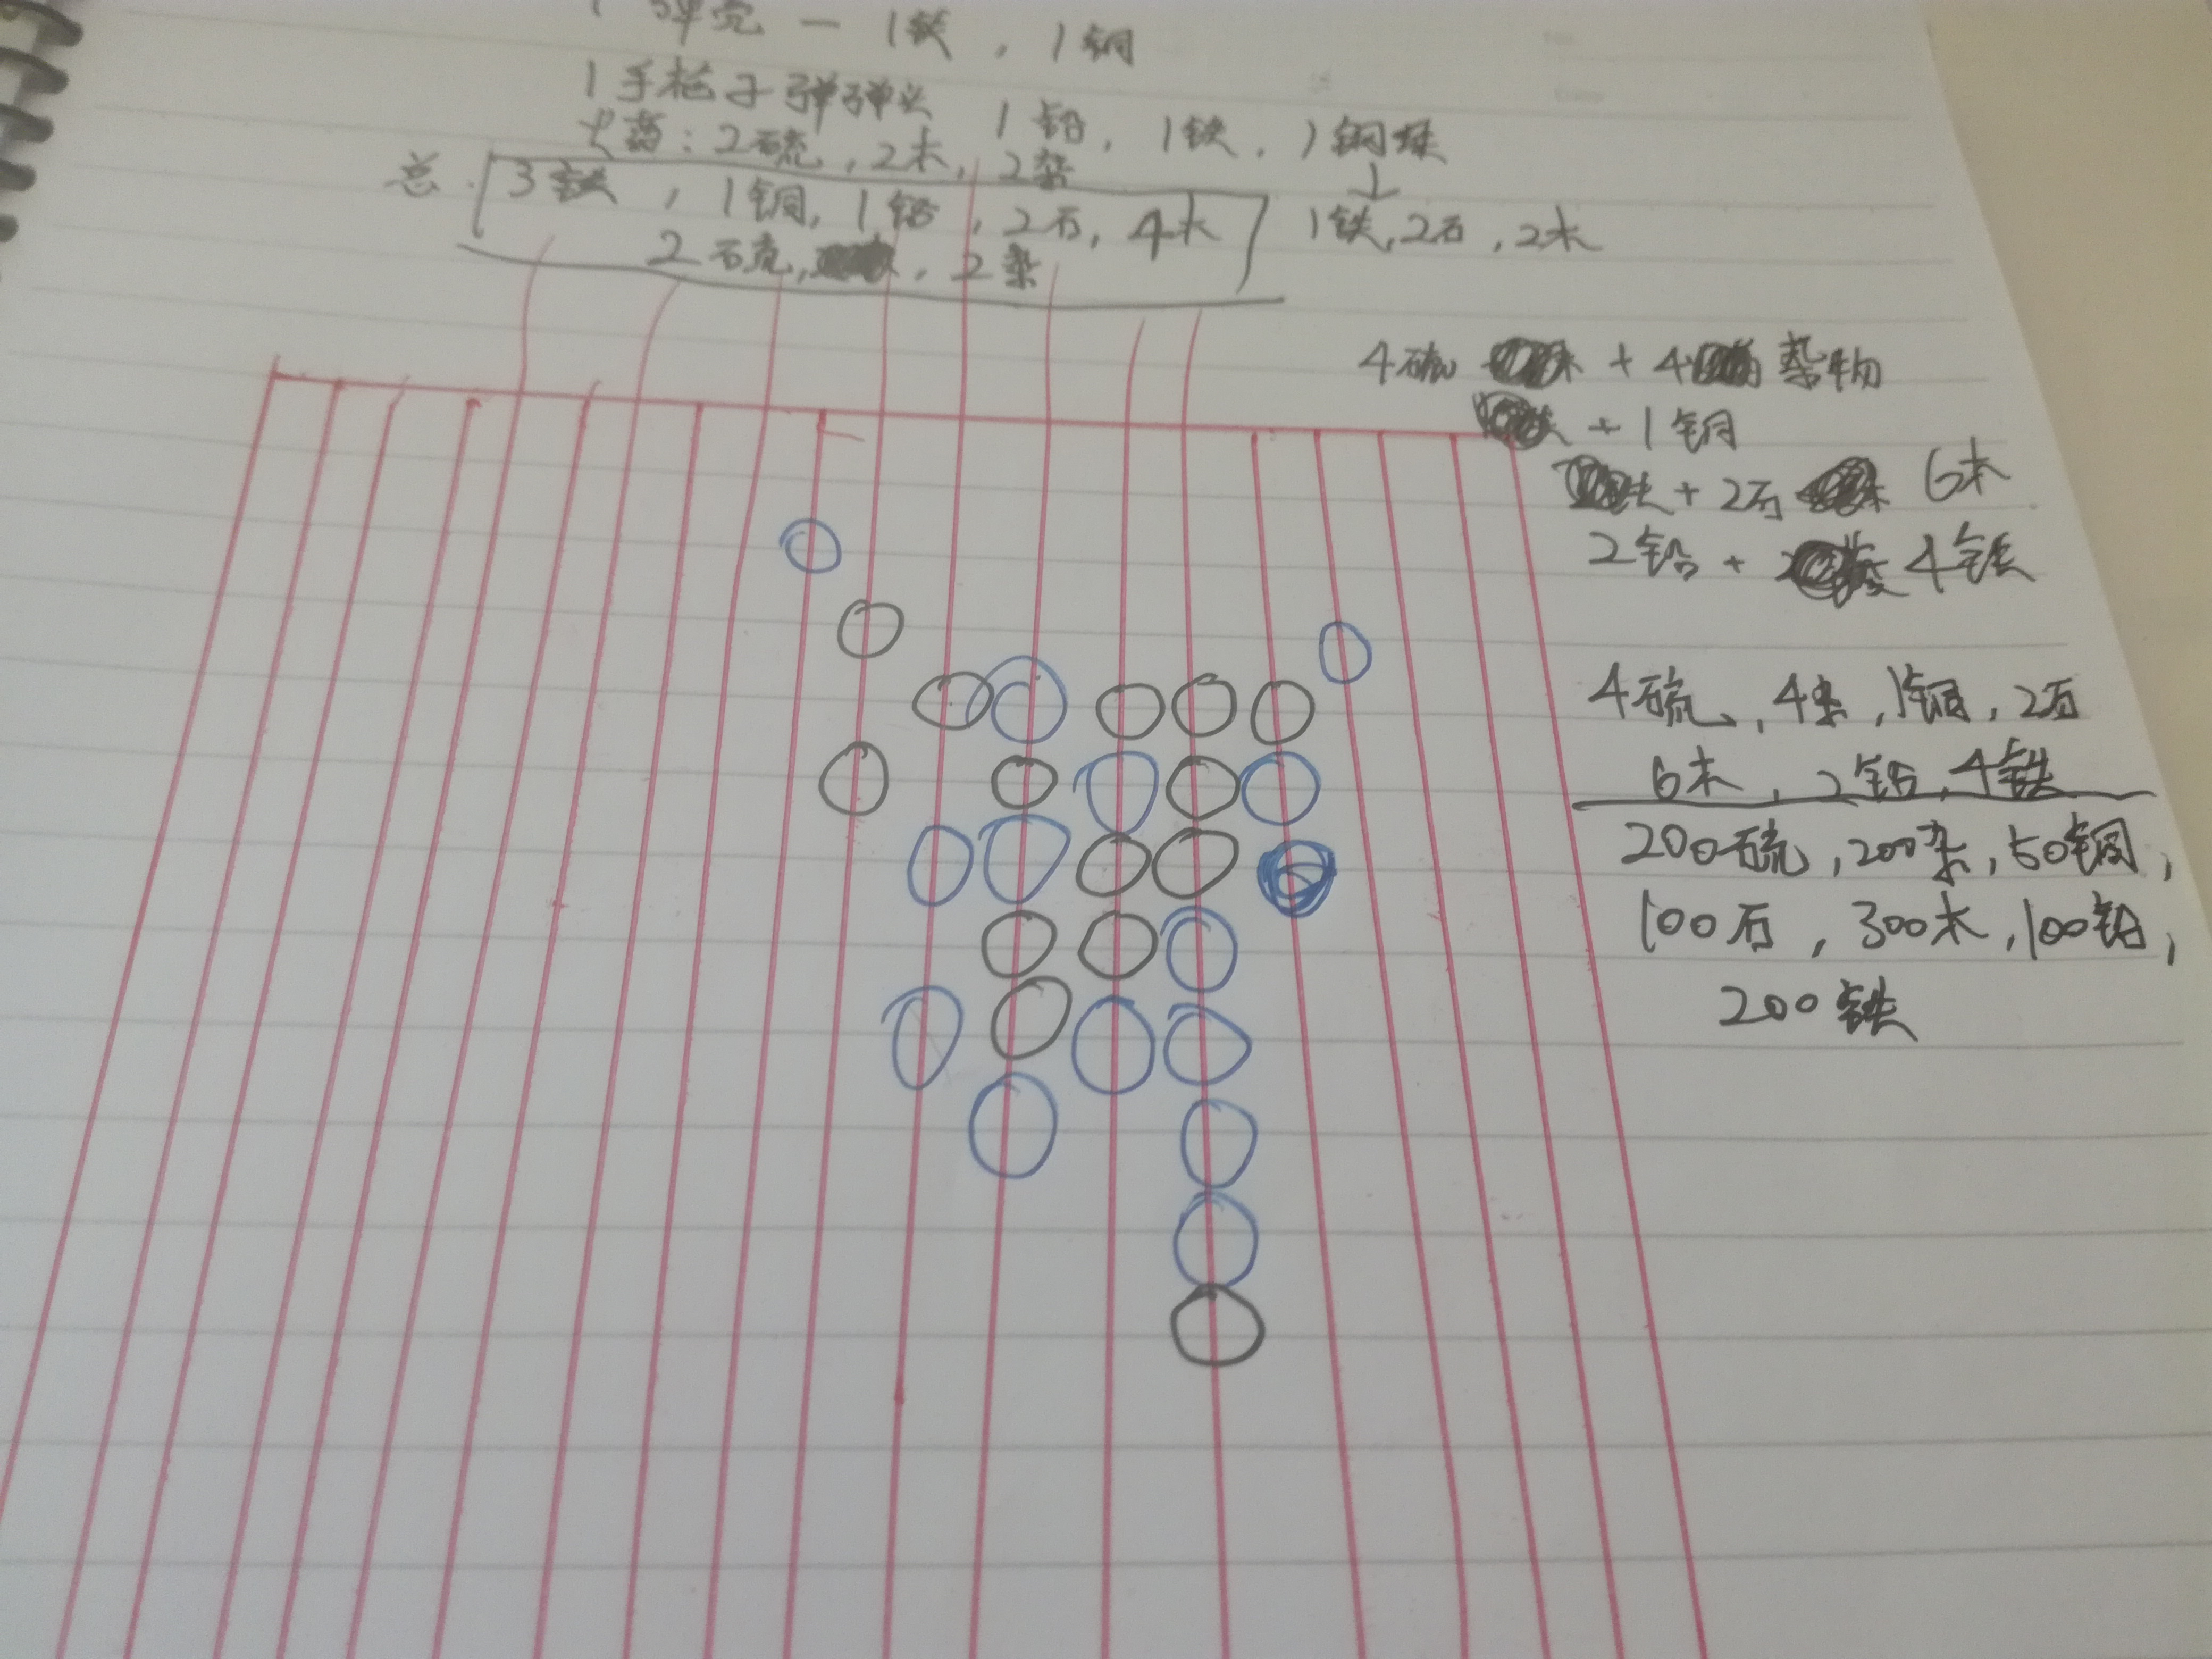 1弹壳 — 1铁，1铜
1手枪子弹弹头 1铅，1铁，1铜珠
火药：2硫，2木，2杂
↓
总：3铁，1铜，1铅，2石，4木
1铁，2石，2木
2硫，2杂
4硫 + 4杂物
+ 1铜
+ 2石 6木
2铅 + 4铁
4硫，4杂，1铜，2石
6木，2铅，4铁
200硫，200杂，50铜，
100石，300木，100铅，
200铁